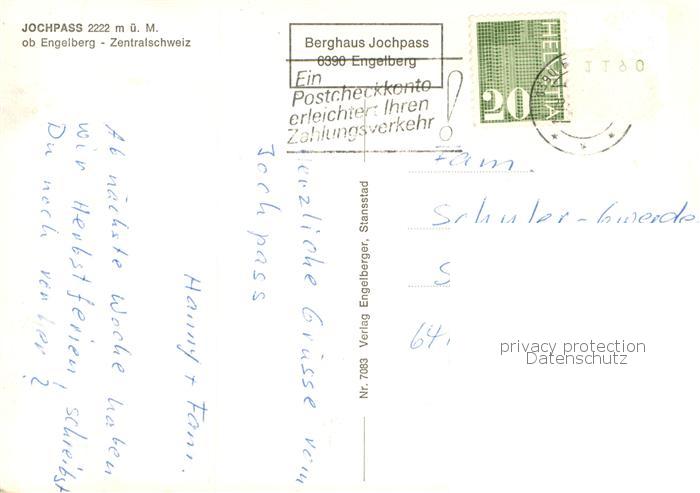 JOCHPASS 2222 m ü. M.
ob Engelberg - Zentralschweiz
Berghaus Jochpass
6390 Engelberg
Ein
Postcheckkonto
erleichtert Ihren
Zahlungsverkehr!
HELVETIA
20
1190
Herzliche Grüsse vom
Jochpass
Hanny + Fam.
Ab nächste Woche haben
wir Herbstferien, schreibst
Du noch vorher?
Nr. 7083 Verlag Engelberger, Stansstad
Fam.
Schuler-Gwerde
S
64
privacy protection
Datenschutz